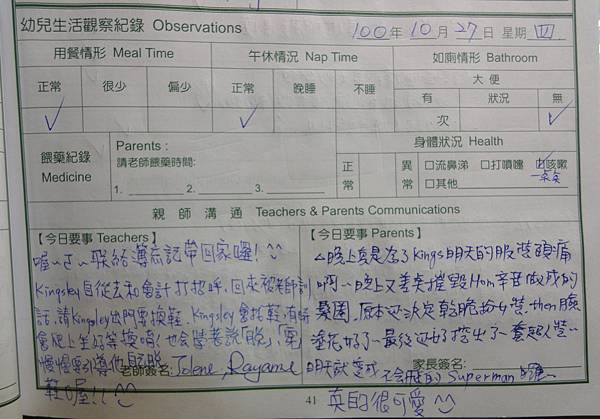 幼兒生活觀察紀錄 Observations 100年10月27日星期四
用餐情形 Meal Time 午休情況 Nap Time 如廁情形 Bathroom
正常 很少 偏少 正常 晚睡 不睡 大便
有 狀況 無
✓ ✓ 次 ✓
餵藥紀錄
Medicine
Parents:
請老師餵藥時間:
1. 2. 3.
身體狀況 Health
正常 異常 □流鼻涕 □打噴嚏 □咳嗽
一點點
□其他
親師溝通 Teachers & Parents Communications
【今日要事 Teachers】
喔~ 聯絡簿忘記帶回家囉!
Kingsley自從去和會計打招呼,回來被老師訓
話,請Kingsley出門要換鞋,Kingsley會
會 也會學老師說「脫」、「穿」
慢慢
老師簽名: Jolene, Rayame
鞋喔!!
【今日要事 Parents】
晚上真是為了Kings明天的服裝頭痛
啊~晚上又差點摧毀Mom辛苦做成的
原本還決定乾脆扮女裝,then臉
塗花好了~最後還好挖出了一套
明天就變成不會飛的Superman囉~
家長簽名:
真的很可愛
41